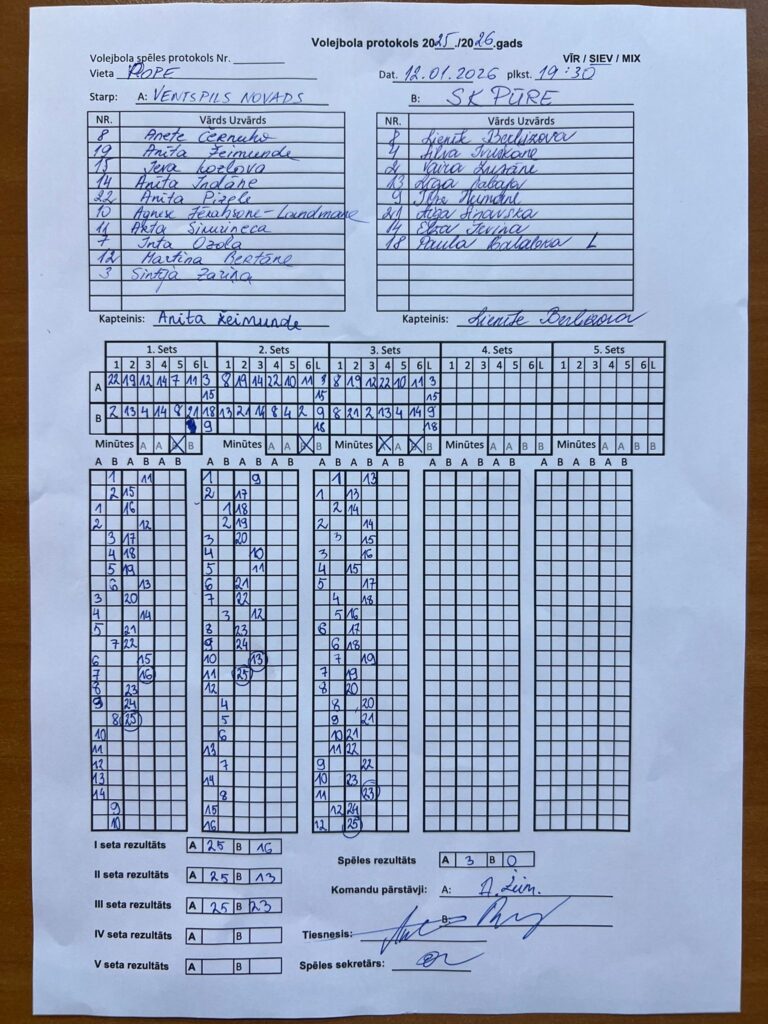 Volejbola protokols 2025./2026.gads
Volejbola spēles protokols Nr.
VĪR / SIEV / MIX
Vieta POPE
Dat. 12.01.2026 plkst. 19:30
Starp: A: VENTSPILS NOVADS
B: SK PŪRE
NR. Vārds Uzvārds
8 Anete Černuho
19 Anita Žeimunde
15 Ieva Kozlova
14 Anita Indāne
22 Anita Pizele
10 Agnese Fērahsone-Landmane
11 Akta Simirineca
7 Inta Ozola
12 Martina Bertāne
3 Sintija Zariņa
Kapteinis: Anita Žeimunde
NR. Vārds Uzvārds
8 Lienīte Berlizova
4
2 Vaira
13
9
21
14 Elza
18 Paula L
Kapteinis: Lienīte Berlizova
1. Sets 2. Sets 3. Sets 4. Sets 5. Sets
1 2 3 4 5 6 L 1 2 3 4 5 6 L 1 2 3 4 5 6 L 1 2 3 4 5 6 L 1 2 3 4 5 6 L
A 22 19 12 14 7 11 3 8 19 14 22 10 11 3 8 19 12 22 10 11 3
15 15 15
B 2 13 4 14 8 21 18 13 21 14 8 4 2 9 8 21 2 13 4 14 9
9 18 18
Minūtes A A B B Minūtes A A B B Minūtes A A B B Minūtes A A B B Minūtes A A B B
A B A B A B A B A B A B A B A B A B A B
1 11 1 9 1 13
2 15 2 17 1 13
1 16 1 18 2 14
2 12 2 19 2 14
3 17 3 20 3 15
4 18 4 10 3 16
5 19 5 11 4 15
6 13 6 21 5 17
3 20 7 22 4 18
4 14 3 12 5 16
5 21 8 23 6 17
7 22 9 24 6 18
6 15 10 13 7 19
7 16 11 25 7 19
8 23 12 8 20
9 24 4 8 20
8 25 5 9 21
10 6 10 21
11 13 11 22
12 7 9 22
13 14 10 23
14 8 11 23
9 15 12 24
10 16 12 25
I seta rezultāts A 25 B 16
II seta rezultāts A 25 B 13
III seta rezultāts A 25 B 23
IV seta rezultāts A B
V seta rezultāts A B
Spēles rezultāts A 3 B 0
Komandu pārstāvji: A:
B:
Tiesnesis:
Spēles sekretārs: